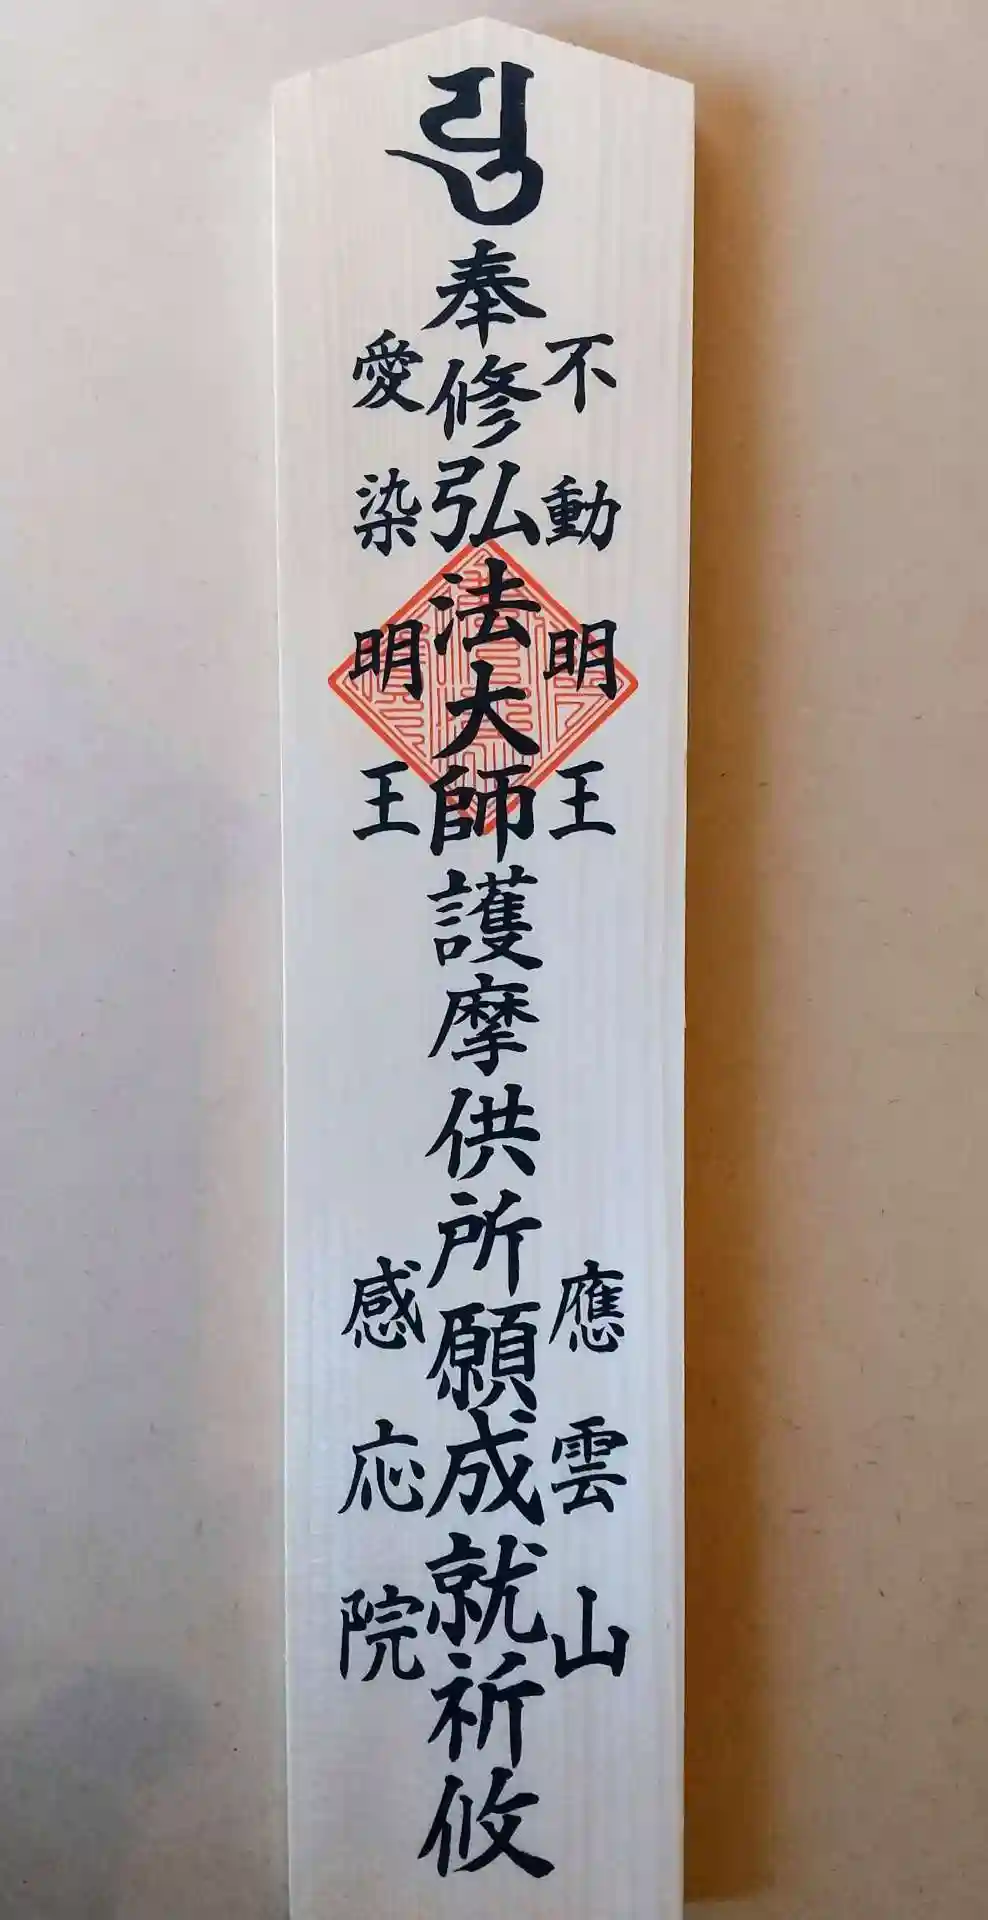 不動明王
應雲山
奉修弘法大師護摩供所願成就祈攸
愛染明王
感応院